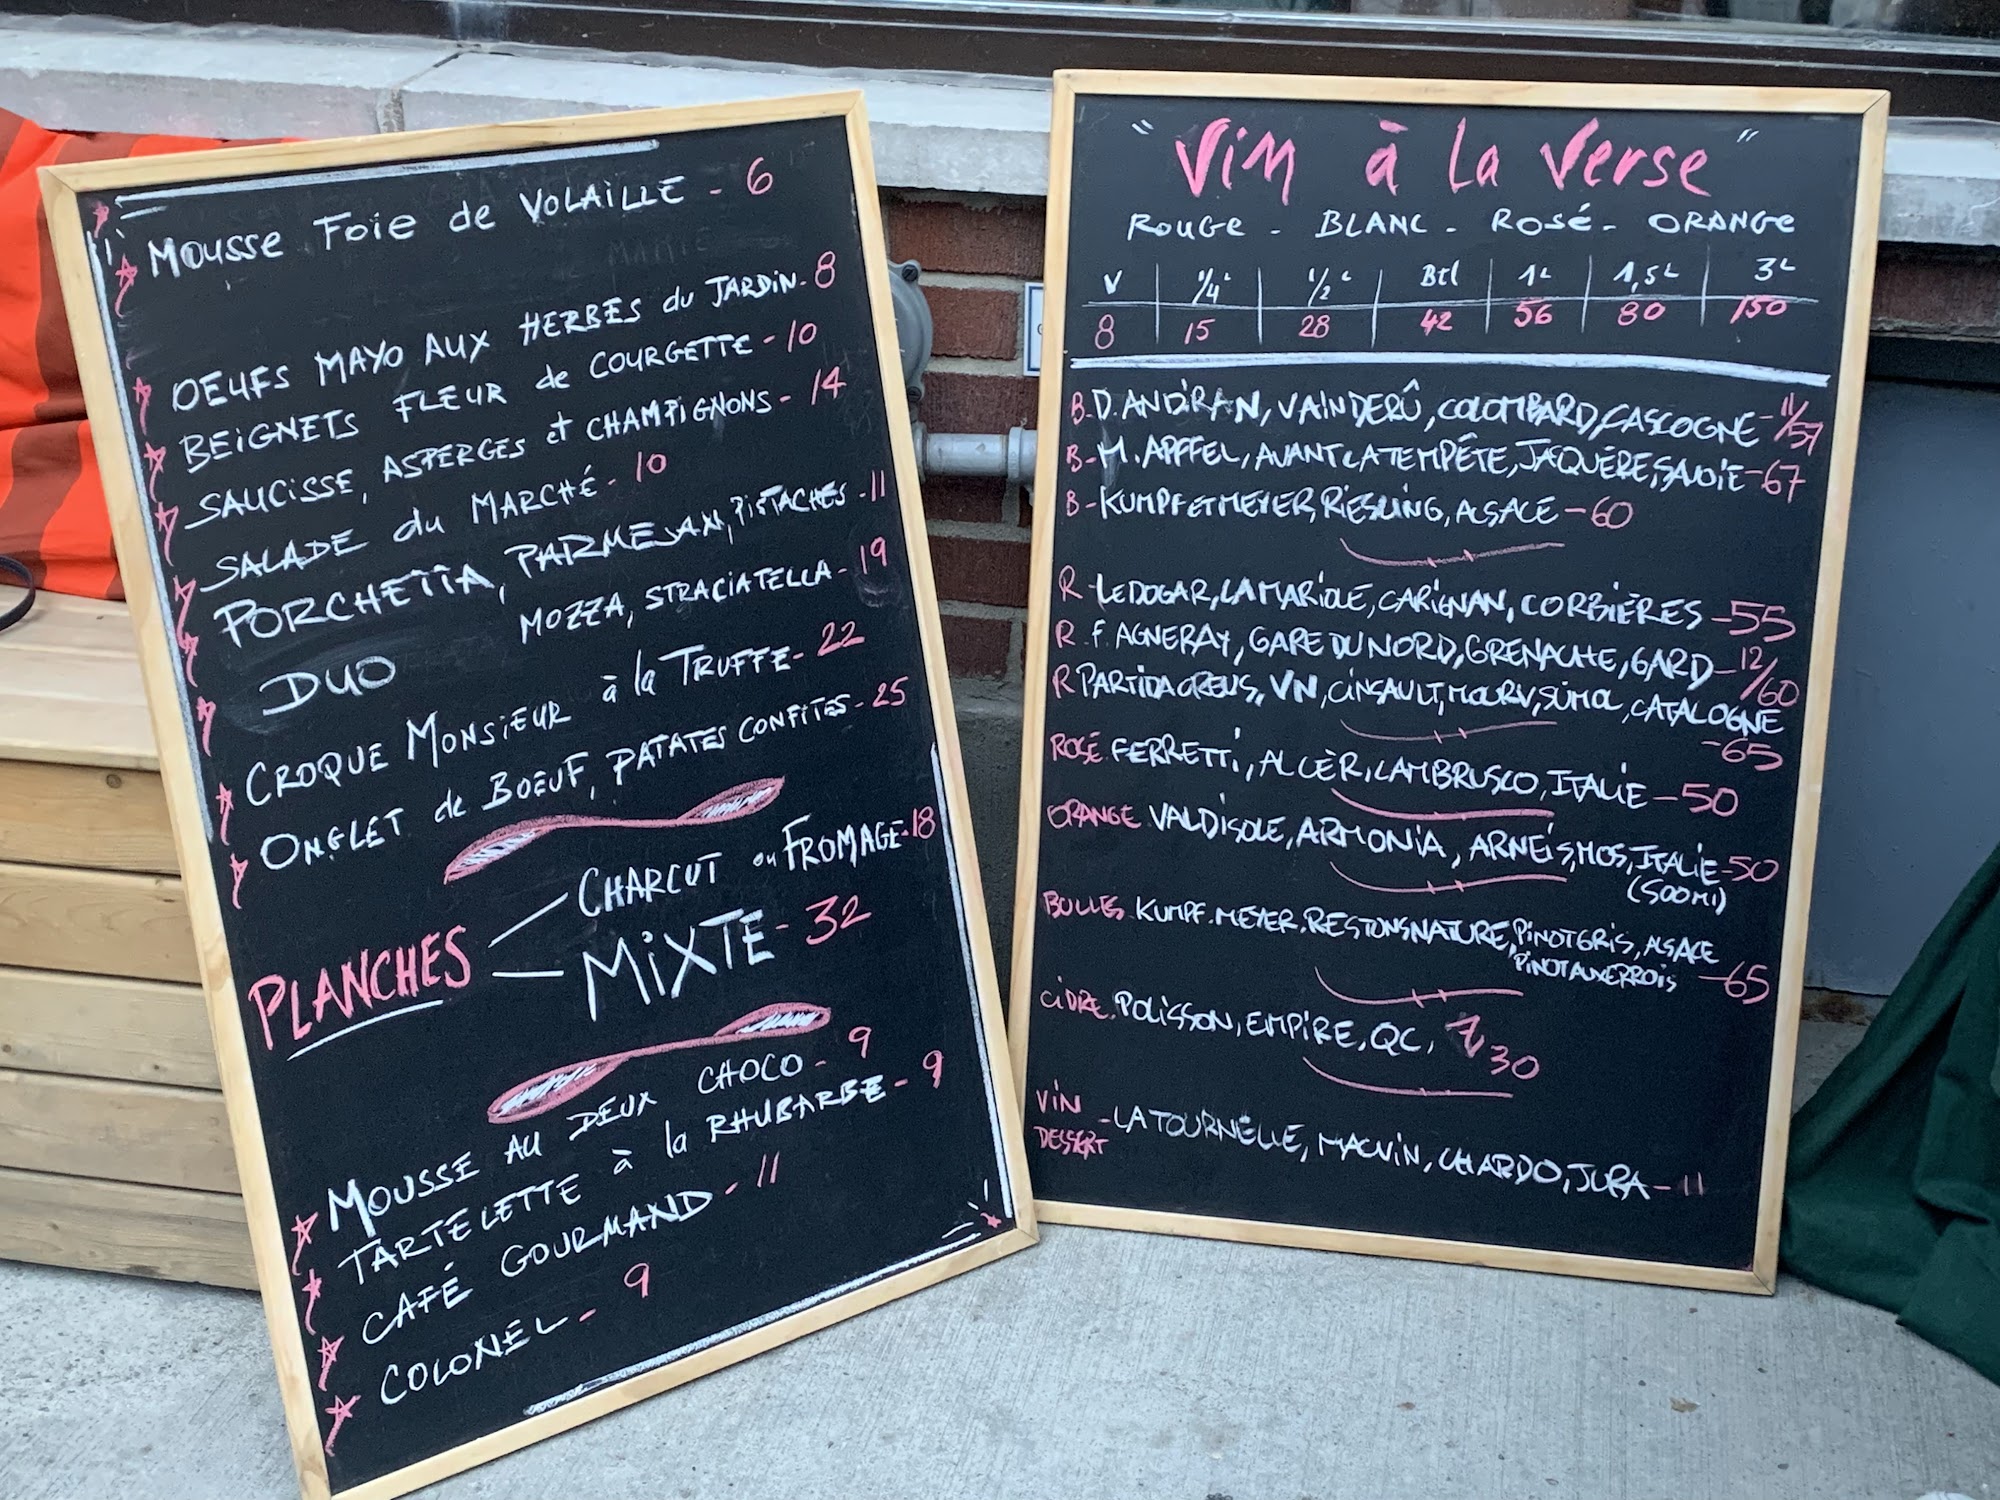 MOUSSE FOIE de VOLAILLE - 6
OEUFS MAYO AUX HERBES du JARDIN - 8
BEIGNETS FLEUR de COURGETTE - 10
SAUCISSE, ASPERGES et CHAMPIGNONS - 14
SALADE du MARCHÉ - 10
PORCHETTA, PARMESAN, PISTACHES - 11
DUO MOZZA, STRACIATELLA - 19
CROQUE MONSIEUR à la TRUFFE - 22
ONGLET de BOEUF, PATATES CONFITES - 25
PLANCHES
CHARCUT ou FROMAGE - 18
MIXTE - 32
MOUSSE AU DEUX CHOCO - 9
TARTELETTE à la RHUBARBE - 9
CAFÉ GOURMAND - 11
COLONEL - 9
"Vin à La Verse"
ROUGE - BLANC - ROSÉ - ORANGE
V 1/4 L 1/2 L Btl 1L 1,5L 3L
8 15 28 42 56 80 150
B - D. ANDIRAN, VAINDERÛ, COLOMBARD, GASCOGNE - 11/57
B - M. APFFEL, AVANT LA TEMPÊTE, JAQUÈRE, SAVOIE - 67
B - KUMPF ET MEYER, RIESLING, ALSACE - 60
R - LEDOGAR, LA MARIOLE, CARIGNAN, CORBIÈRES - 55
R. F. AGNERAY, GARE DU NORD, GRENACHE, GARD - 12/60
R PARTIDA CREUS, VN, CINSAULT, MOURV, SUMOL, CATALOGNE
- 65
ROSÉ. FERRETTI, ALCÈR, LAMBRUSCO, ITALIE - 50
ORANGE VALDISOLE, ARMONIA, ARNEIS, MOS, ITALIE - 50
(500Ml)
BULLES. KUMPF. MEYER. RESTONSNATURE, PINOT GRIS, ALSACE
PINOT AUXERROIS - 65
CIDRE. POLISSON, EMPIRE, QC, 7/30
VIN
DESSERT - LA TOURNELLE, MACVIN, CHARDO, JURA - 11